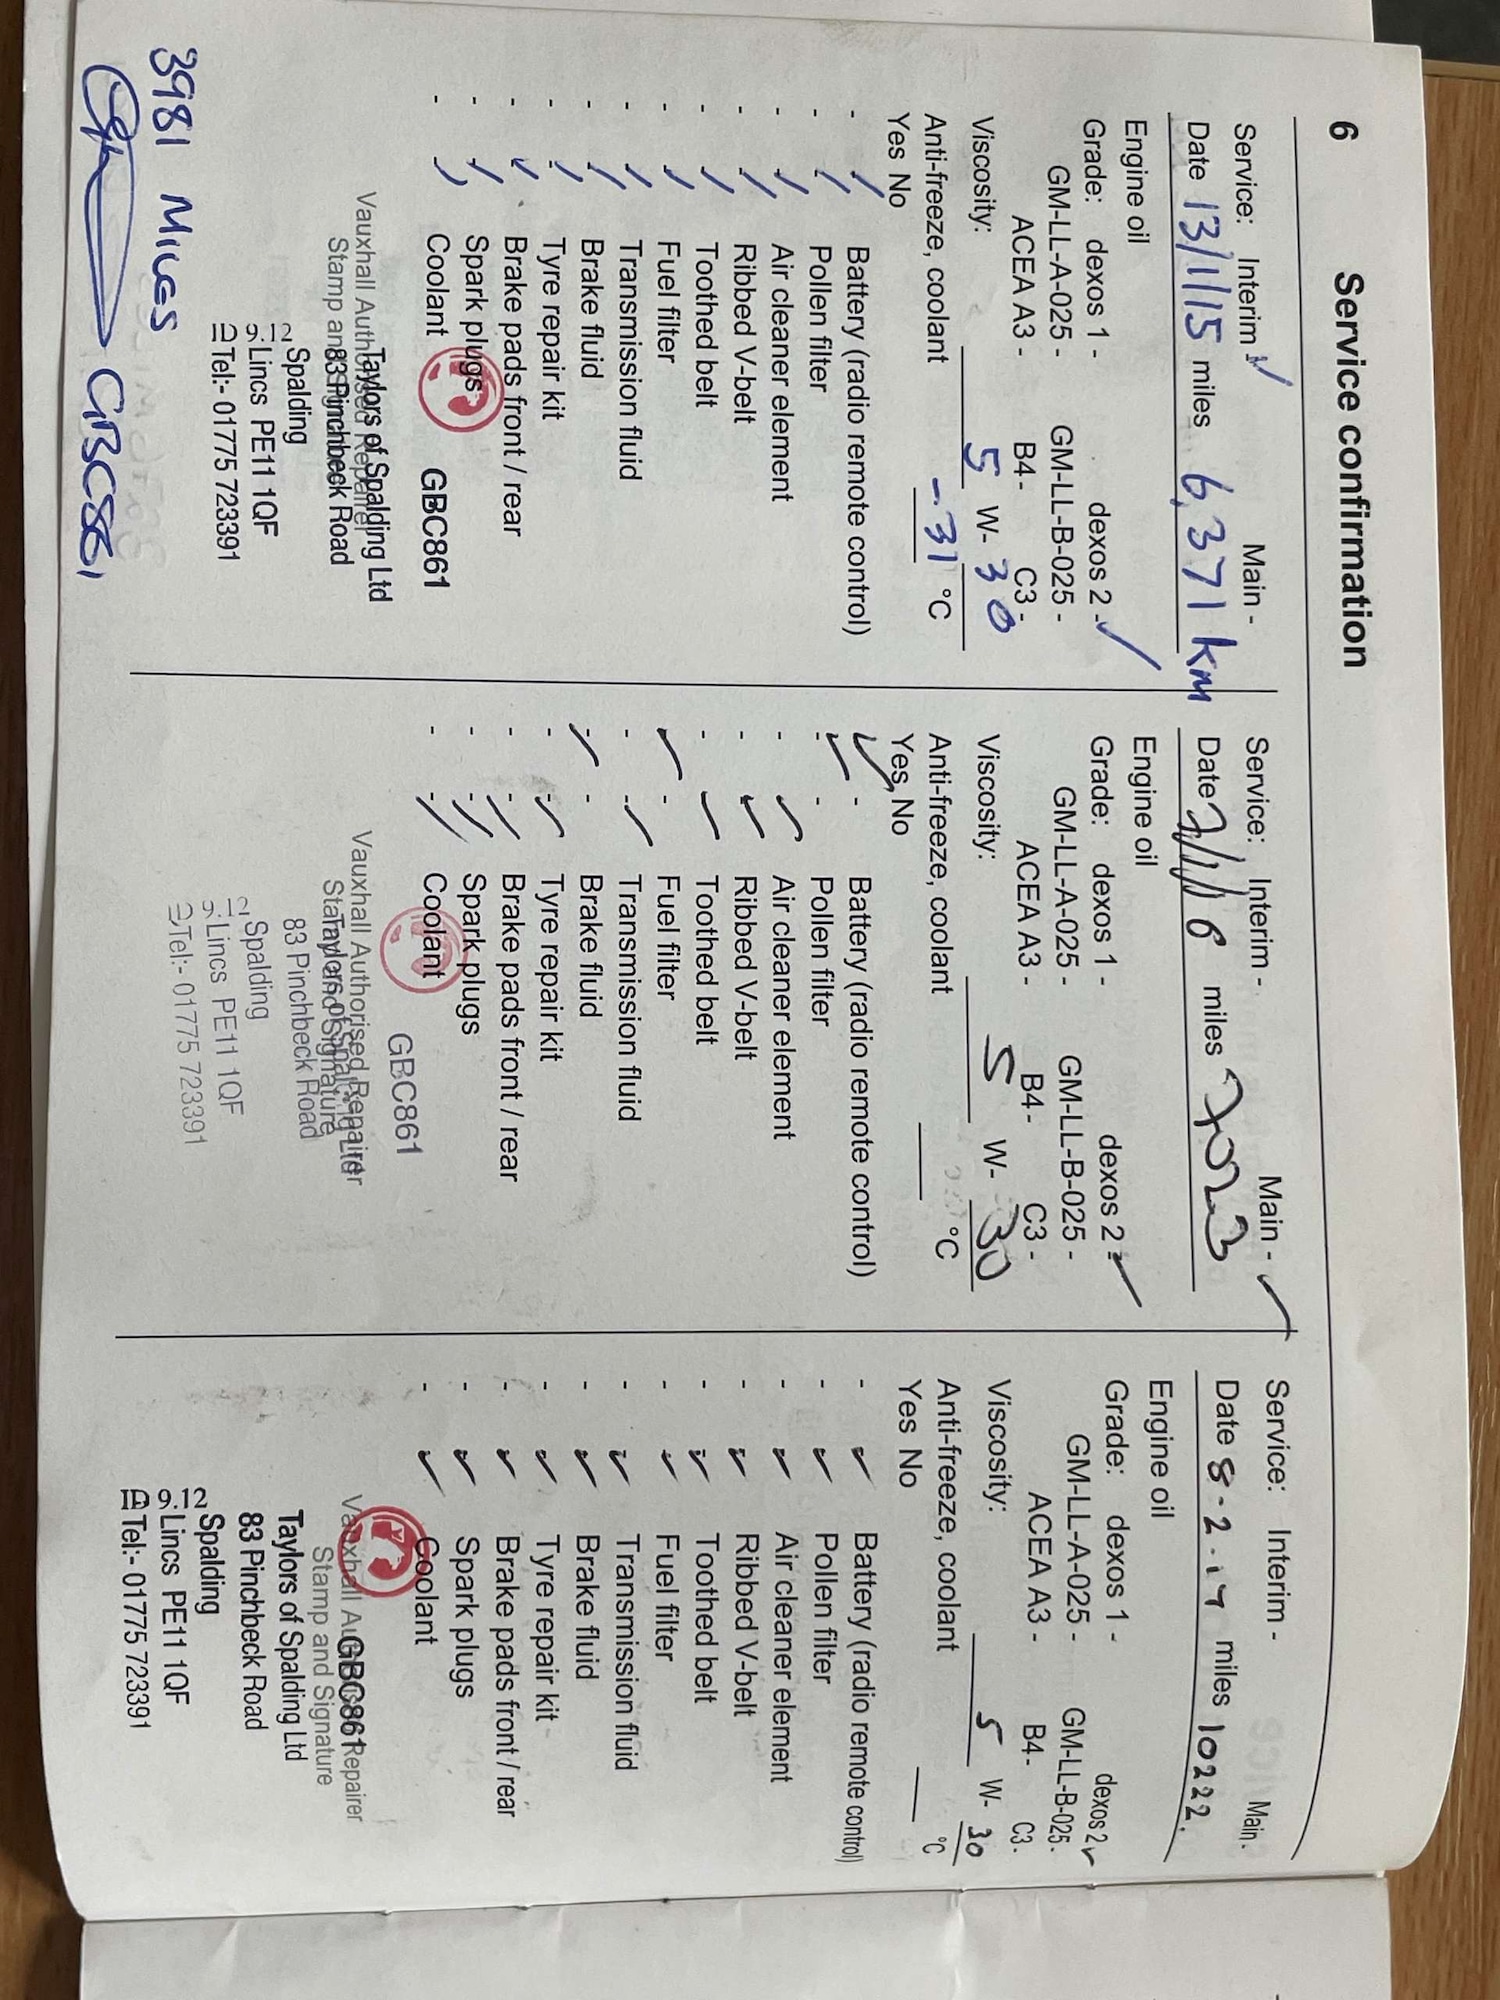 6
Service confirmation
Service: Interim Main -
Date 13/1/15 miles 6,371 km
Engine oil
Grade: dexos 1 - dexos 2 -
GM-LL-A-025 - GM-LL-B-025 -
ACEA A3 - B4 - C3 -
Viscosity: 5 W- 30
Anti-freeze, coolant -31 °C
Yes No
- Battery (radio remote control)
- Pollen filter
- Air cleaner element
- Ribbed V-belt
- Toothed belt
- Fuel filter
- Transmission fluid
- Brake fluid
- Tyre repair kit
- Brake pads front / rear
- Spark plugs
- Coolant
GBC861
Vauxhall Authorised Repairer
Taylors of Spalding Ltd
83 Pinchbeck Road
Spalding
Lincs PE11 1QF
Tel:- 01775 723391
3981 MILES
GBC861
Service: Interim - Main -
Date 7/1/16 miles 7023
Engine oil
Grade: dexos 1 - dexos 2 -
GM-LL-A-025 - GM-LL-B-025 -
ACEA A3 - B4 - C3 -
Viscosity: 5 W- 30
Anti-freeze, coolant °C
Yes No
- Battery (radio remote control)
- Pollen filter
- - Air cleaner element
- - Ribbed V-belt
- Toothed belt
- Fuel filter
- - Transmission fluid
- - Brake fluid
- - Tyre repair kit
- - Brake pads front / rear
- - Spark plugs
- - Coolant
GBC861
Vauxhall Authorised Repairer
Stamp and Signature
Taylors of Spalding Ltd
83 Pinchbeck Road
Spalding
Lincs PE11 1QF
Tel:- 01775 723391
Service: Interim - Main -
Date 8-2-17 miles 10222.
Engine oil
Grade: dexos 1 - dexos 2
GM-LL-A-025 - GM-LL-B-025 -
ACEA A3 - B4 - C3 -
Viscosity: 5 W- 30
Anti-freeze, coolant °C
Yes No
- Battery (radio remote control)
- Pollen filter
- Air cleaner element
- Ribbed V-belt
- Toothed belt
- Fuel filter
- Transmission fluid
- Brake fluid
- Tyre repair kit
- Brake pads front / rear
- Spark plugs
- Coolant
Vauxhall Authorised Repairer
GBC861
Stamp and Signature
Taylors of Spalding Ltd
83 Pinchbeck Road
Spalding
Lincs PE11 1QF
Tel:- 01775 723391